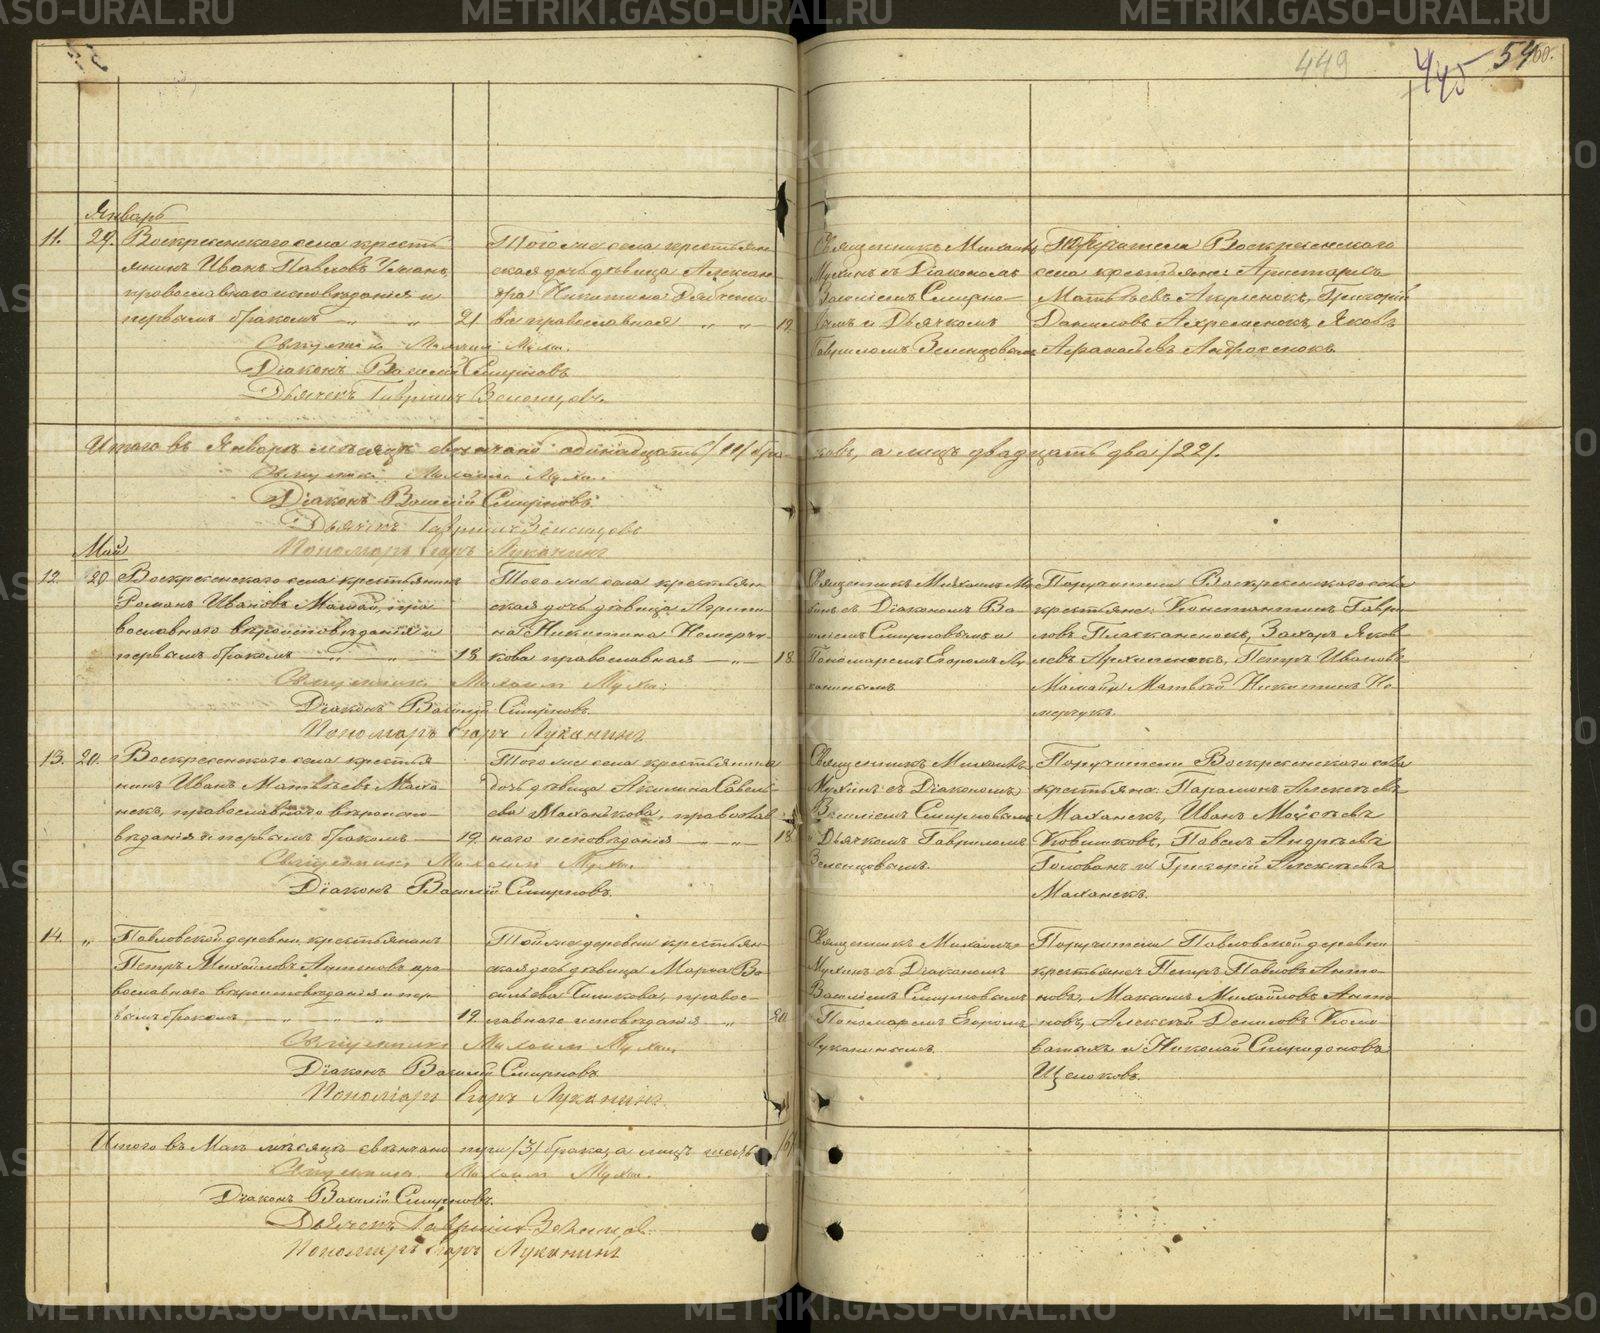 449
445
54
60.
Январь
11. 29. Воскресенскаго села кресть
янинъ Иванъ Павловъ
православнаго исповѣданія и
первымъ бракомъ 21
Тогоже села крестьян
ская дочь дѣвица Алексан
дра Никитина
ва православная 19.
Священникъ Михаилъ
Мухинъ съ Діакономъ
Василіемъ Смирно
вымъ и Дьячкомъ
Гавриломъ Зеленцовымъ
Поручители Воскресенскаго
села крестьяне: Аристархъ
Матвѣевъ Григорій
Даниловъ Ахременокъ, Яковъ
Афанасьевъ Андросенокъ.
Священникъ Михаилъ Мухин.
Діаконъ Василій Смирновъ
Дьячекъ Гавріилъ Зеленцовъ.
Итого въ Январѣ мѣсяцѣ свѣнчано одинадцать /11/ бра-
ковъ, а лицъ двадцать два /22/.
Священникъ Михаилъ Мухин.
Діаконъ Василій Смирновъ.
Дьячекъ Гавріилъ Зеленцовъ
Пономарь Егоръ Луканинъ
Май
12. 20 Воскресенскаго села крестьянинъ
Романъ Ивановъ Мамай, пра
вославнаго вѣроисповѣданія и
первымъ бракомъ 18
Тогоже села крестьян
ская дочь дѣвица Агрипи
на Никитина Немерчу
кова православная 18.
Священникъ Михаилъ Му
хинъ съ Діакономъ Ва
силіемъ Смирновымъ и
Пономаремъ Егоромъ Лу
канинымъ.
Поручители Воскресенскаго села
крестьяне: Константинъ Гаври
ловъ Плаксаменокъ, Захаръ Яков
левъ Архипенокъ, Петръ Ивановъ
Мамай и Матвѣй Никитинъ Не
мерчукъ.
Священникъ Михаилъ Мухин.
Діаконъ Василій Смирновъ.
Пономарь Егоръ Луканинъ
13. 20. Воскресенскаго села крестья
нинъ Иванъ Матвѣевъ Маха
некъ, православнаго вѣроиспо
вѣданія и первымъ бракомъ 19.
Тогоже села крестьянина
дочь дѣвица Акилина Савель
ева Маханькова, православ
наго исповѣданія 18
Священникъ Михаилъ
Мухинъ съ Діакономъ
Василіемъ Смирновымъ
и Дьячкомъ Гавриломъ
Зеленцовымъ.
Поручители Воскресенскаго села
крестьяне: Парамонъ Алексѣевъ
Маханекъ, Иванъ Моисеевъ
Ковшиковъ, Павелъ Андреевъ
Голованъ и Григорій Алексѣевъ
Маханекъ.
Священникъ Михаилъ Мухин.
Діаконъ Василій Смирновъ.
14. „ Павловской деревни крестьянинъ
Петръ Михайловъ Антоновъ пра
вославнаго вѣроисповѣданія и пер
вымъ бракомъ 19.
Тойже деревни крестьян
ская дочь дѣвица Марѳа Ва
сильева православ
наго исповѣданія 20.
Священникъ Михаилъ
Мухинъ съ Діакономъ
Василіемъ Смирновымъ
Пономаремъ Егоромъ
Луканинымъ.
Поручители Павловской деревни
крестьяне Петръ Павловъ Анто
новъ, Максимъ Михайловъ Анто
новъ, Алексѣй Даниловъ Коно
валихъ и Николай Спиридоновъ
Щелоковъ.
Священникъ Михаилъ Мухин.
Діаконъ Василій Смирновъ.
Пономарь Егоръ Луканинъ.
Итого въ Маѣ мѣсяцѣ свѣнчано три /3/ брака, а лицъ шесть /6/
Священникъ Михаилъ Мухин.
Діаконъ Василій Смирновъ.
Дьячекъ Гавріилъ Зеленцовъ
Пономарь Егоръ Луканинъ
METRIKI.GASO-URAL.RU